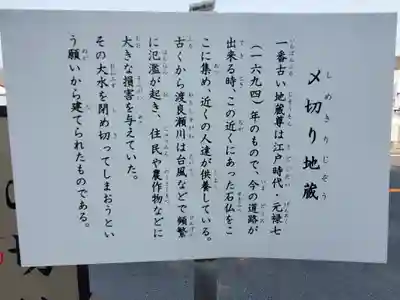 〆切り地蔵
一番古い地蔵尊は江戸時代、元禄七
(一六九四)年のもので、今の道路が
出来る時、この近くにあった石仏をこ
こに集め、近くの人達が供養している。
古くから渡良瀬川は台風などで頻繁
に氾濫が起き、住民や農作物などに
大きな損害を与えていた。
その大水を閉め切ってしまおうとい
う願いから建てられたものである。